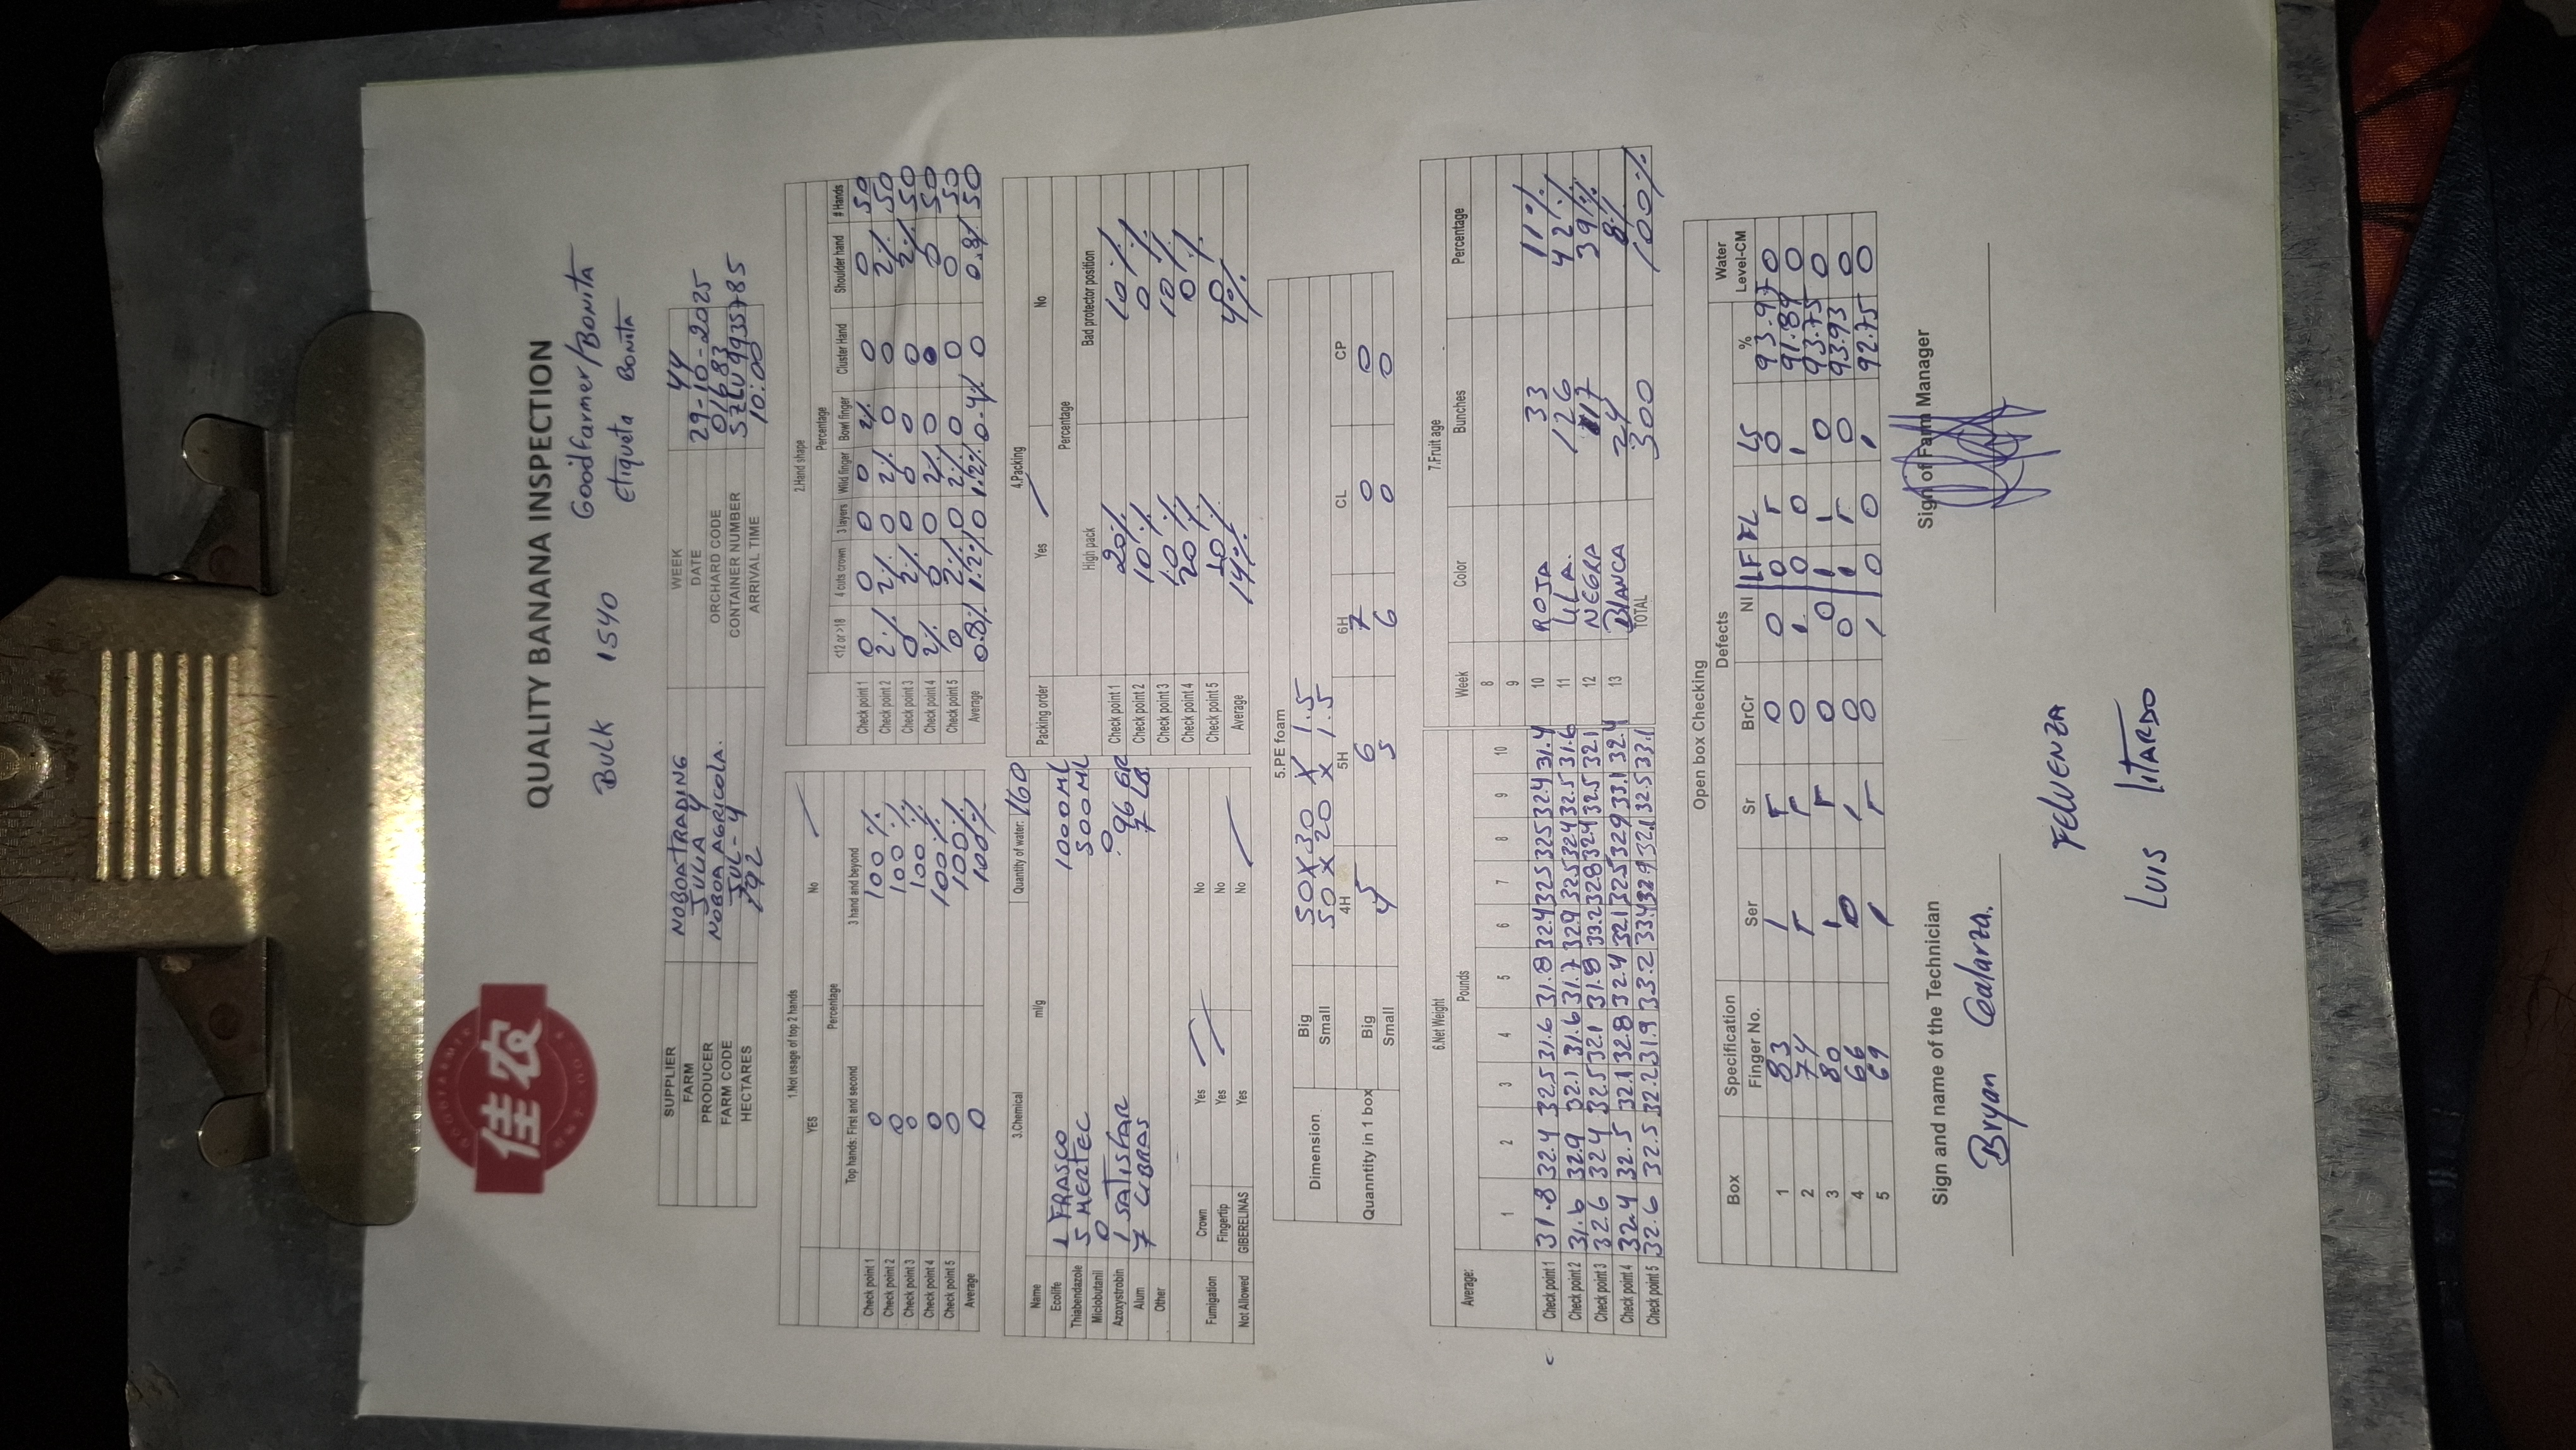 佳农
QUALITY BANANA INSPECTION
BULK 1540 Goodfarmer/BONITA
Etiqueta BONITA
SUPPLIER NOBOATRADING WEEK 44
FARM JULIA 4 DATE 29-10-2025
PRODUCER NOBOA AGRICOLA. ORCHARD CODE 01683
FARM CODE JUL-4 CONTAINER NUMBER SZLU 9935785
HECTARES 292 ARRIVAL TIME 10:00
1.Not usage of top 2 hands
YES No
Percentage
Top hands: First and second 3 hand and beyond
Check point 1 0 100%
Check point 2 0 100%
Check point 3 0 100%
Check point 4 0 100%
Check point 5 0 100%
Average 0 100%
2.Hand shape
Percentage
<12 or >18 4 cuts crown 3 layers Wild finger Bowl finger Cluster Hand Shoulder hand # Hands
Check point 1 0 0 0 0 2% 0 0 50
Check point 2 2% 2% 0 2% 0 0 2% 50
Check point 3 0 2% 0 0 0 0 2% 50
Check point 4 2% 0 0 2% 0 0 0 50
Check point 5 0 2% 0 2% 0 0 0 50
Average 0.8% 1.2% 0 1.2% 0.4% 0 0.8% 50
3.Chemical Quantity of water: 160
Name ml/g
Ecolife 1 FRASCO 1000ML
Thiabendazole 5 MERTEC 500ML
Miclobutanil 0 0
Azoxystrobin 1 SATISFAR 96 GR
Alum 7 LIBRAS 7 LB.
Other
Fumigation Crown Yes No
Fingertip Yes No
Not Allowed GIBERELINAS Yes No
4.Packing
Packing order Yes No
Percentage
High pack Bad protector position
Check point 1 20% 10%
Check point 2 10% 0%
Check point 3 10% 10%
Check point 4 20% 0%
Check point 5 10% 0
Average 14% 4%
5.PE foam
Dimension Big 50X30 X 1.5
Small 50 X 20 X 1.5
4H 5H 6H CL CP
Quanntity in 1 box Big 5 6 7 0 0
Small 4 5 6 0 0
6.Net Weight
Average: Pounds
1 2 3 4 5 6 7 8 9 10
Check point 1 31.8 32.4 32.5 31.6 31.8 32.4 325 325 32.4 31.4
Check point 2 31.6 32.9 32.1 31.6 31.7 329 32.5 324 32.5 31.6
Check point 3 32.6 324 325 32.1 31.8 33.2 32.8 32.4 32.5 32.1
Check point 4 32.4 32.5 32.1 32.8 32.4 32.1 32.5 329 33.1 32.4
Check point 5 32.6 32.5 32.2 31.9 33.2 33.4 32.9 32.1 32.5 33.1
7.Fruit age
Week Color Bunches Percentage
8
9
10 ROJA 33 11%
11 LILA. 126 42%
12 NEGRA 117 39%
13 BLANCA 24 8%
TOTAL 300 100%
Open box Checking
Box Specification Defects Water
Finger No. Ser Sr BrCr NI LF FL LS % Level-CM
1 83 1 r 0 0 0 r 0 93.97 0
2 74 r r 0 1 0 0 1 91.89 0
3 80 1 r 0 0 1 1 0 93.75 0
4 66 0 1 0 0 1 r 0 93.93 0
5 69 1 r 0 1 0 0 1 92.75 0
Sign and name of the Technician Sign of Farm Manager
Bryan Galarza.
FELVENZA
LUIS LITARDO